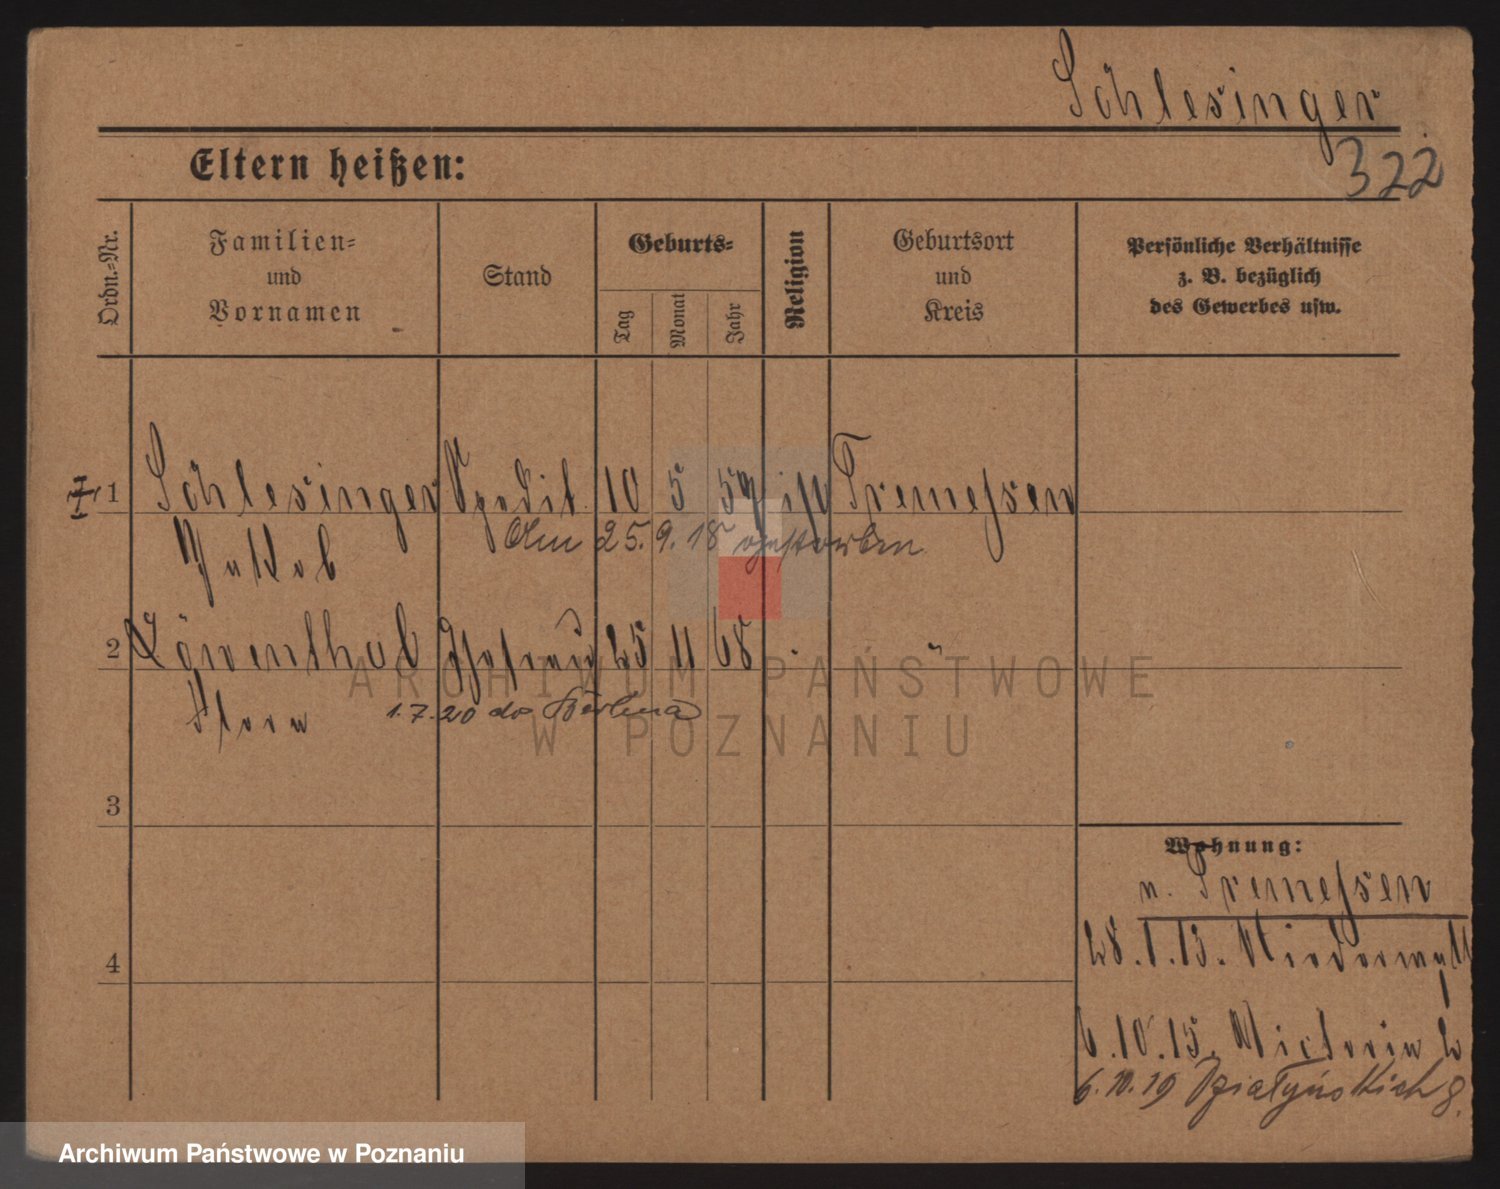 Schlesinger
322
Eltern heißen:
Ordn.-Nr.
Familien-
und
Vornamen
Stand
Geburts-
Tag
Monat
Jahr
Religion
Geburtsort
und
Kreis
Persönliche Verhältnisse
z. B. bezüglich
des Gewerbes usw.
1 Schlesinger Spedit. 10 5 59 Tremessen
Am 25. 9. 18 gestorben
Jakob
2 Löwenthal Ehefrau 25 11 68 "
Flora
1.7.20 do Berlina
3
4
Wohnung:
n. Tremessen
28.1.13.
6.10.15. Victoria
6.10.19 Działyńskich 8.
ARCHIWUM PAŃSTWOWE
W POZNANIU
Archiwum Państwowe w Poznaniu